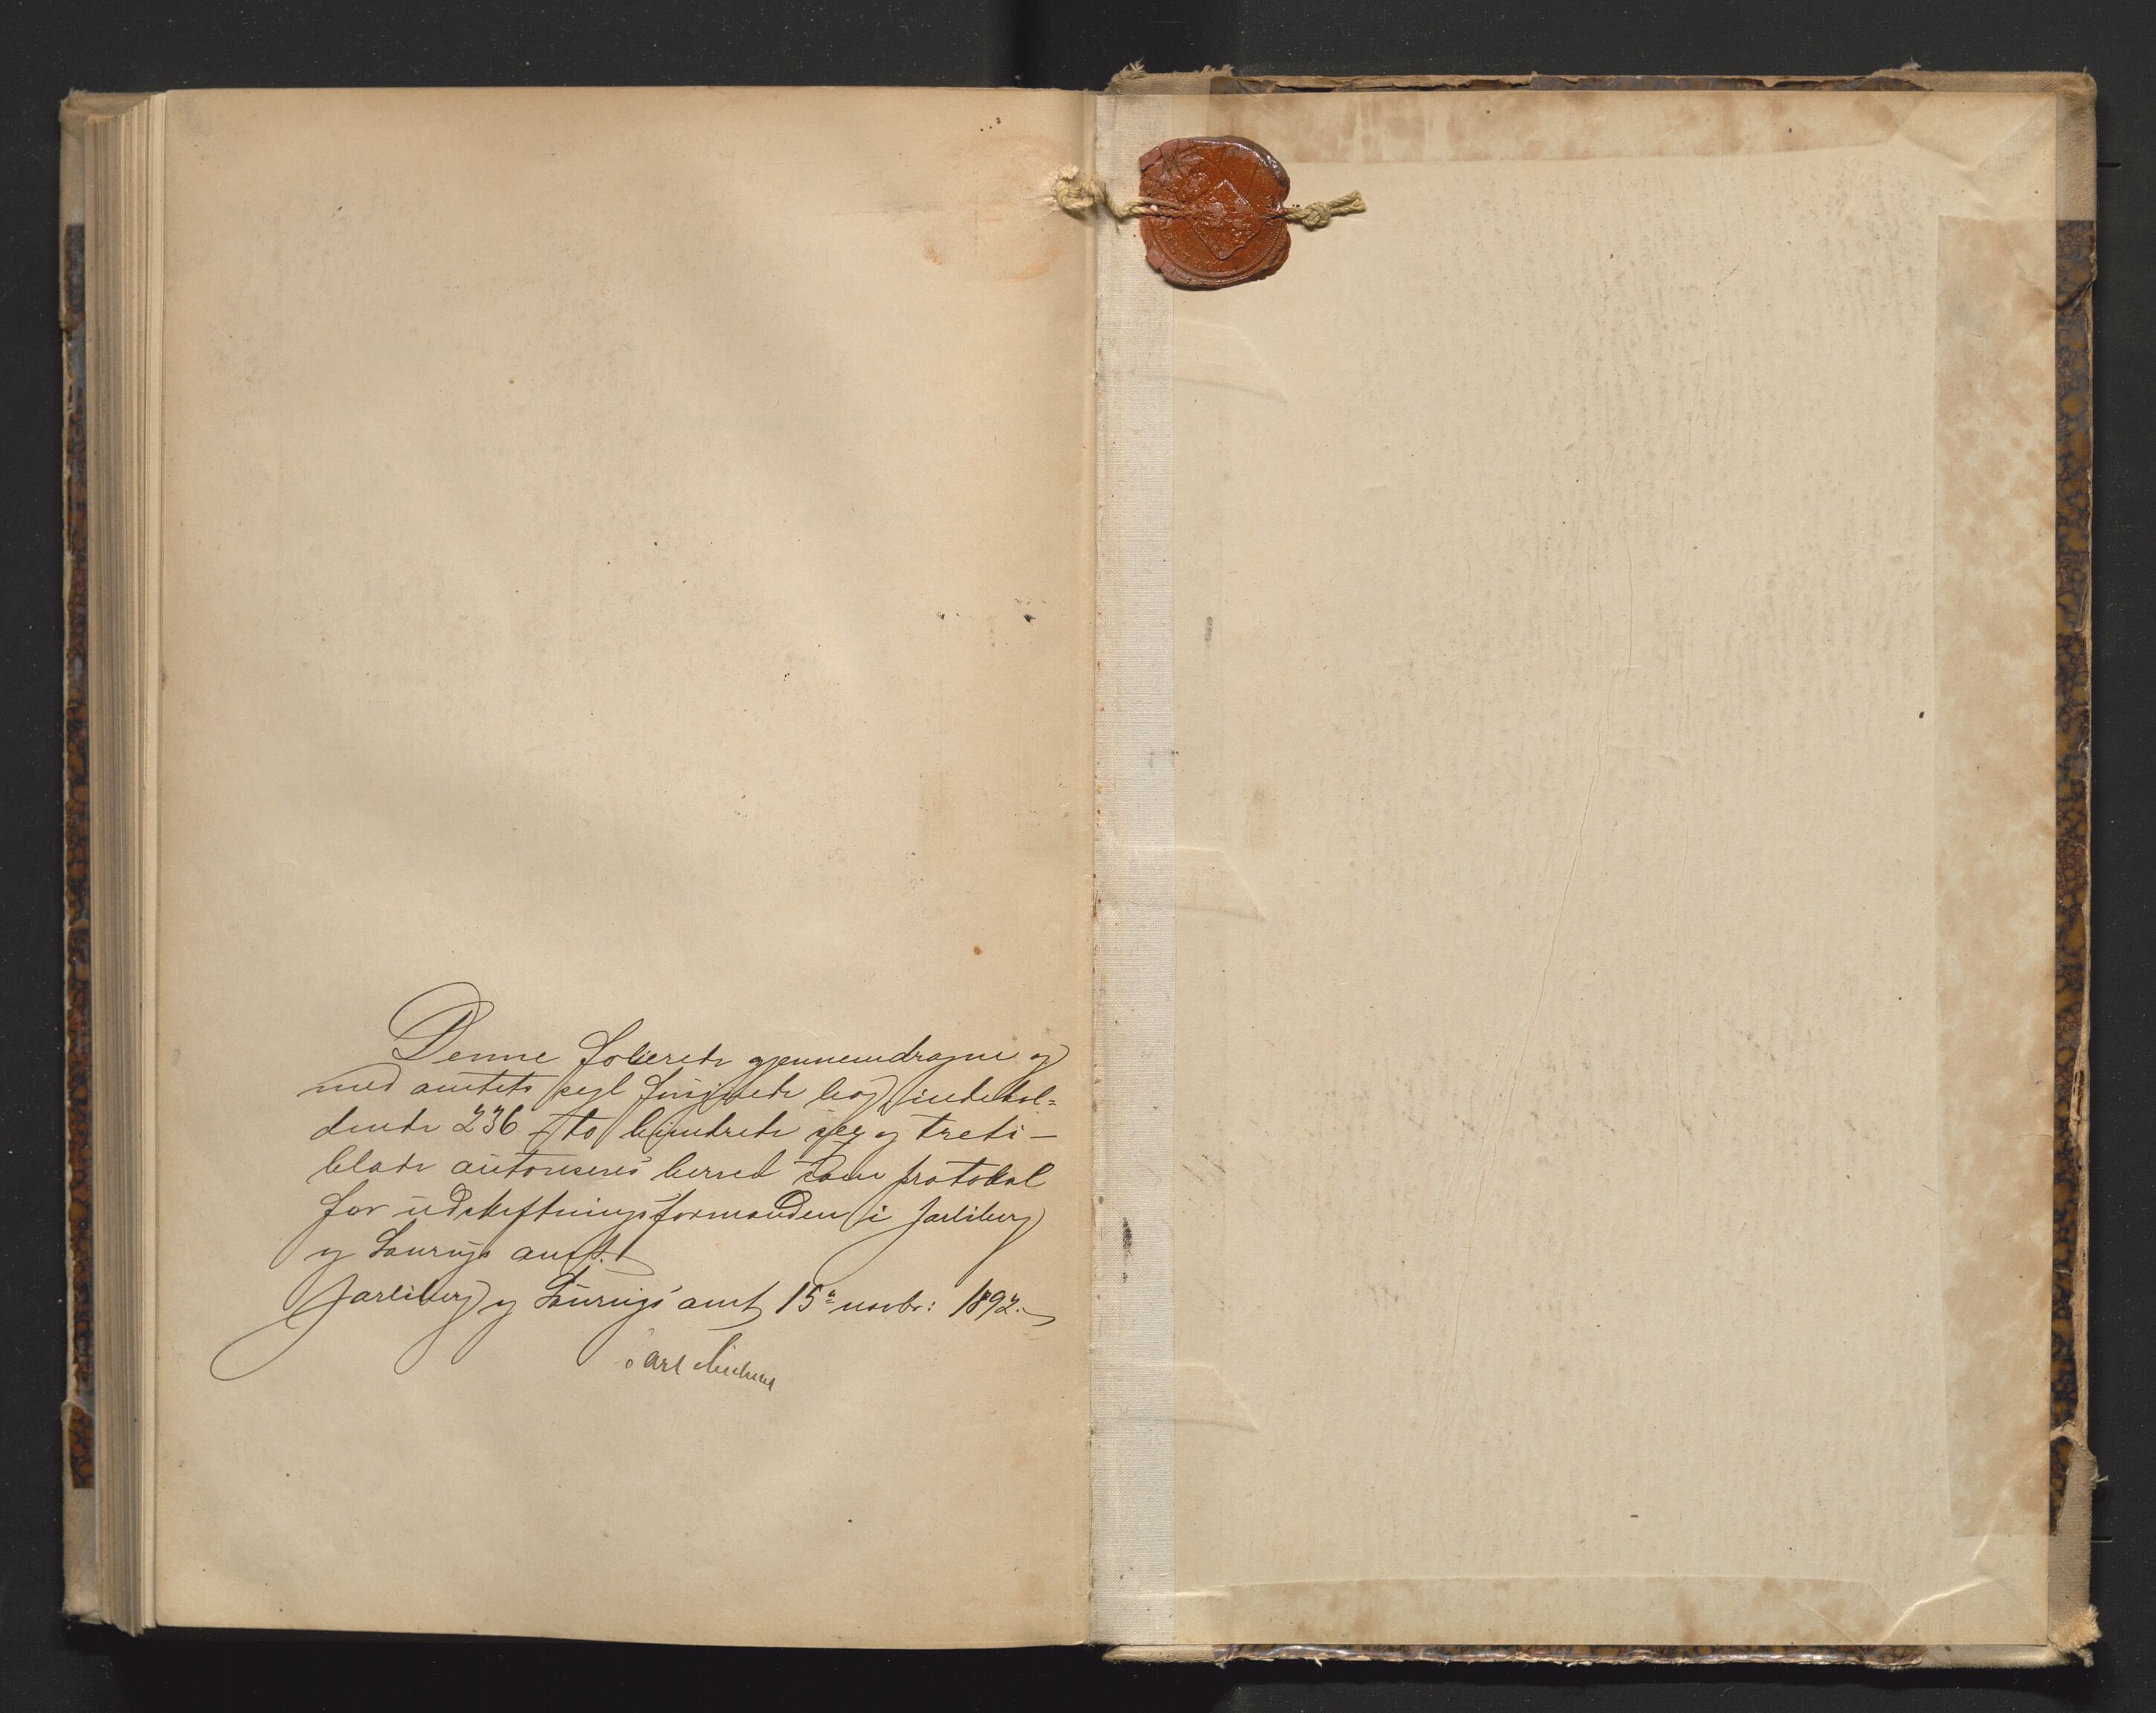 Denne folierede gjennemdragne og
med amtets segl forsynede bog, indehol=
dende 236 – to hundrede sex og treti –
blade autoriseres herved som protokol
for udskiftningsformanden i Jarlsberg
og Laurvigs amt.
Jarlsberg og Laurvigs amt 15de novbr: 1892.